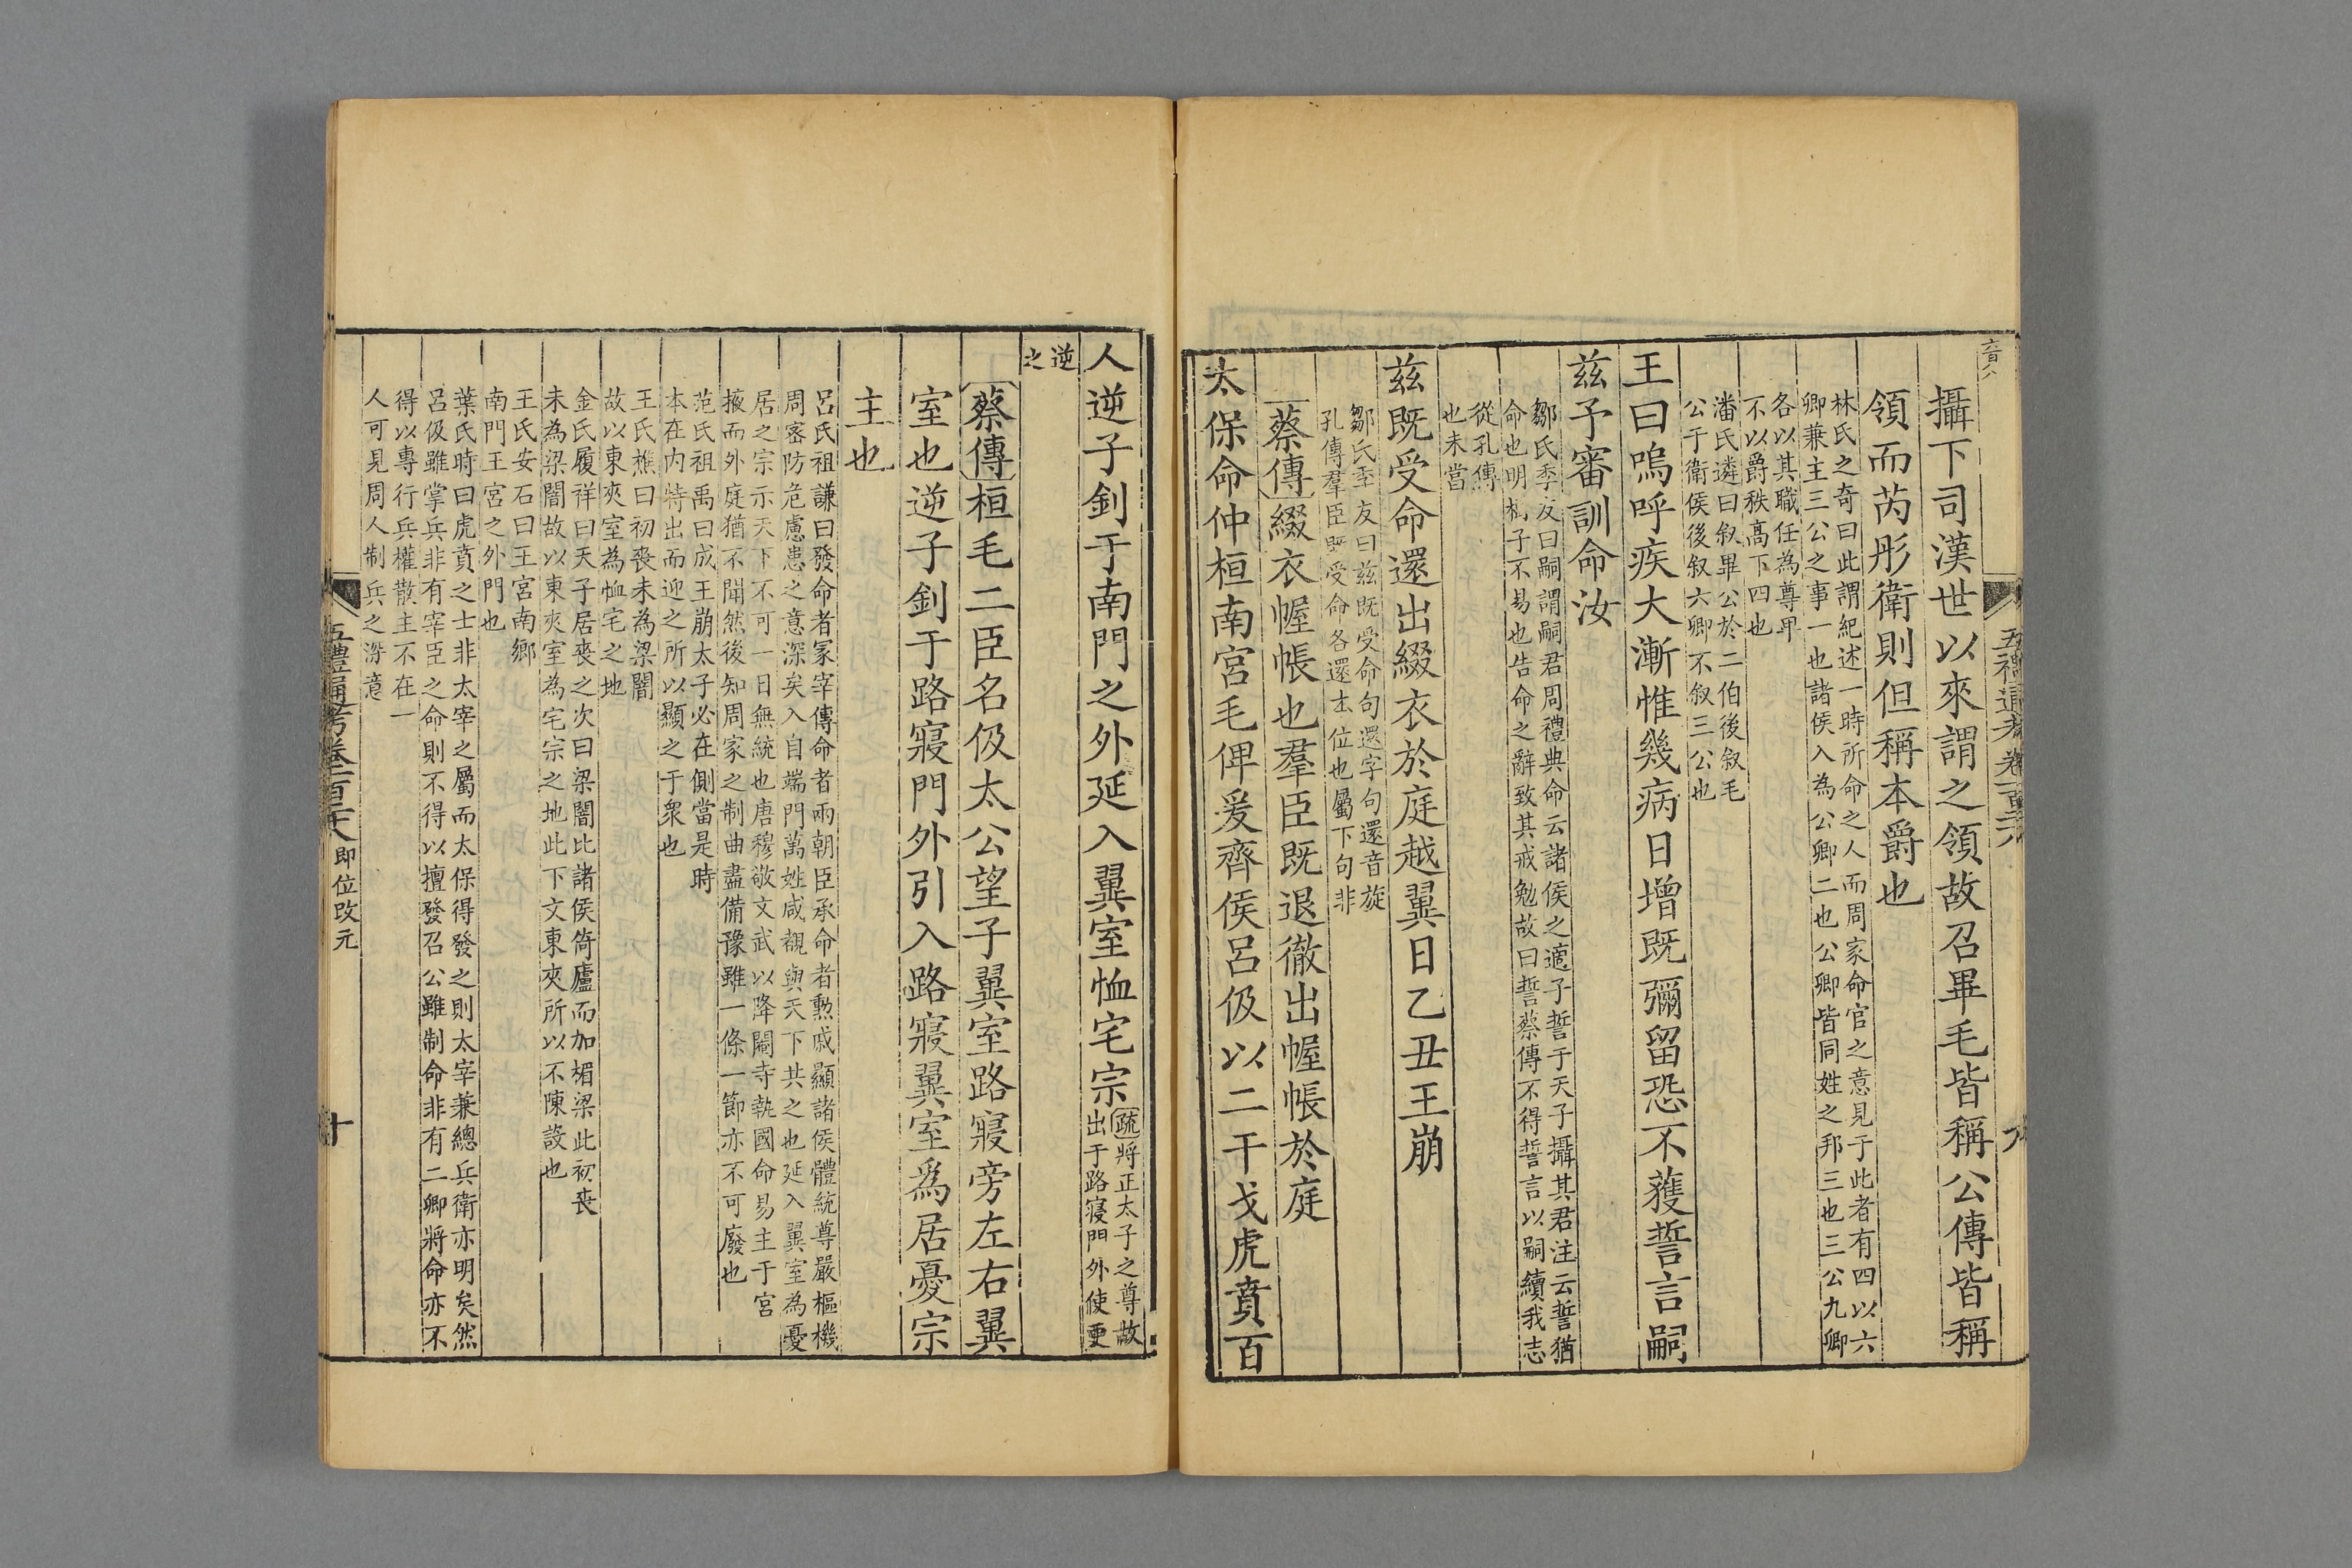 五禮通考卷一百二十八
九
攝下司漢世以來謂之領故召畢毛皆稱公傳皆稱
領而芮彤衛則但稱本爵也
林氏之奇曰此謂紀述一時所命之人而周家命官之意見于此者有四以六
卿兼主三公之事一也諸侯入為公卿二也公卿皆同姓之邦三也三公九卿
各以其職任為尊卑
不以爵秩高下四也
潘氏遴曰叙畢公於二伯後叙毛
公于衛侯後叙六卿不叙三公也
王曰嗚呼疾大漸惟幾病日增既彌留恐不獲誓言嗣
茲予審訓命汝
鄒氏季友曰嗣謂嗣君周禮典命云諸侯之適子誓于天子攝其君注云誓猶
命也明樹子不易也告命之辭致其戒勉故曰誓蔡傳不得誓言以嗣續我志
從孔傳
也未當
茲既受命還出綴衣於庭越翼日乙丑王崩
鄒氏季友曰茲既受命句還字句還音旋
孔傳羣臣既受命各還本位也屬下句非
蔡傳綴衣幄帳也羣臣既退徹出幄帳於庭
太保命仲桓南宮毛俾爰齊侯呂伋以二干戈虎賁百
人逆子釗于南門之外延入翼室恤宅宗
疏將正太子之尊故
出于路寢門外使更
逆
之
蔡傳桓毛二臣名伋太公望子翼室路寢旁左右翼
室也逆子釗于路寢門外引入路寢翼室爲居憂宗
主也
呂氏祖謙曰發命者冢宰傳命者兩朝臣承命者勲戚顯諸侯體統尊嚴樞機
周密防危慮患之意深矣入自端門萬姓咸覩與天下共之也延入翼室為憂
居之宗示天下不可一日無統也唐穆敬文武以降閹寺執國命易主于宮
掖而外庭猶不聞然後知周家之制曲盡備豫雖一條一節亦不可廢也
范氏祖禹曰成王崩太子必在側當是時
本在內特出而迎之所以顯之于衆也
王氏樵曰初喪未為梁闇
故以東夾室為恤宅之地
金氏履祥曰天子居喪之次曰梁闇比諸侯倚廬而加楣梁此初喪
未為梁闇故以東夾室為宅宗之地此下文東夾所以不陳設也
王氏安石曰王宮南鄉
南門王宮之外門也
葉氏時曰虎賁之士非太宰之屬而太保得發之則太宰兼總兵衛亦明矣然
呂伋雖掌兵非有宰臣之命則不得以擅發召公雖制命非有二卿將命亦不
得以專行兵權散主不在一
人可見周人制兵之深意
五禮通考卷一百二十八 即位改元
十